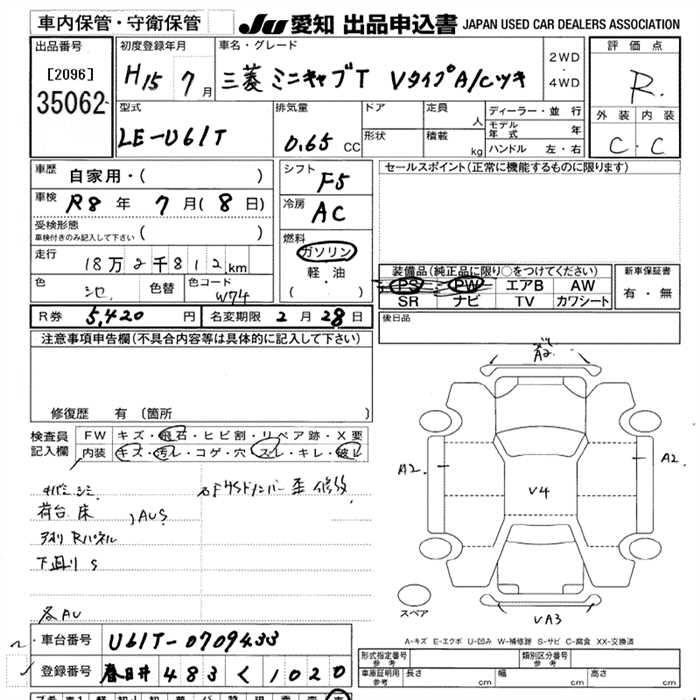 車内保管・守衛保管
JU 愛知 出品申込書 JAPAN USED CAR DEALERS ASSOCIATION
出品番号
[2096]
35062
初度登録年月
H15 7月
車名・グレード
三菱 ミニキャブT VタイプA/Cツキ
2WD
・
4WD
評価点
R.
外装 内装
C . C
型式
LE-U61T
排気量
0.65 CC
ドア
形状
定員 人
積載 kg
ディーラー・並行
モデル年式 年
ハンドル 左・右
車歴 自家用・( )
車検 R8 年 7 月 (8 日)
受検形態
車検付きのみ記入して下さい ( )
走行 18万2千812km
色 シロ 色替 色コード W74
シフト F5
冷房 AC
燃料
ガソリン
軽・油
( )
セールスポイント(正常に機能するものに限ります)
装備品(純正品に限り○をつけてください)
PS PW エアB AW
SR ナビ TV カワシート
新車保証書
有・無
R券 5,420 円 名変期限 2月 28日
後日品
注意事項申告欄(不具合内容等は具体的に記入して下さい)
修復歴 有 (箇所 )
検査員
記入欄
FW キズ・飛石・ヒビ割・リペア跡・X要
内装 キズ・汚レ・コゲ・穴・スレ・キレ・破レ
荷台 床 , AUS
アオリ Rパネル
下廻り S
各AU
A2
A2.
A2
V4
VA3
スペア
A-キズ E-エクボ U-凹み W-補修跡 S-サビ C-腐食 XX-交換済
車台番号 U61T-0709433
登録番号 春日井 483 く 1020
形式指定番号
参考
類別区分番号
参考
車庫証明用
参考
長さ cm 幅 cm 高さ cm